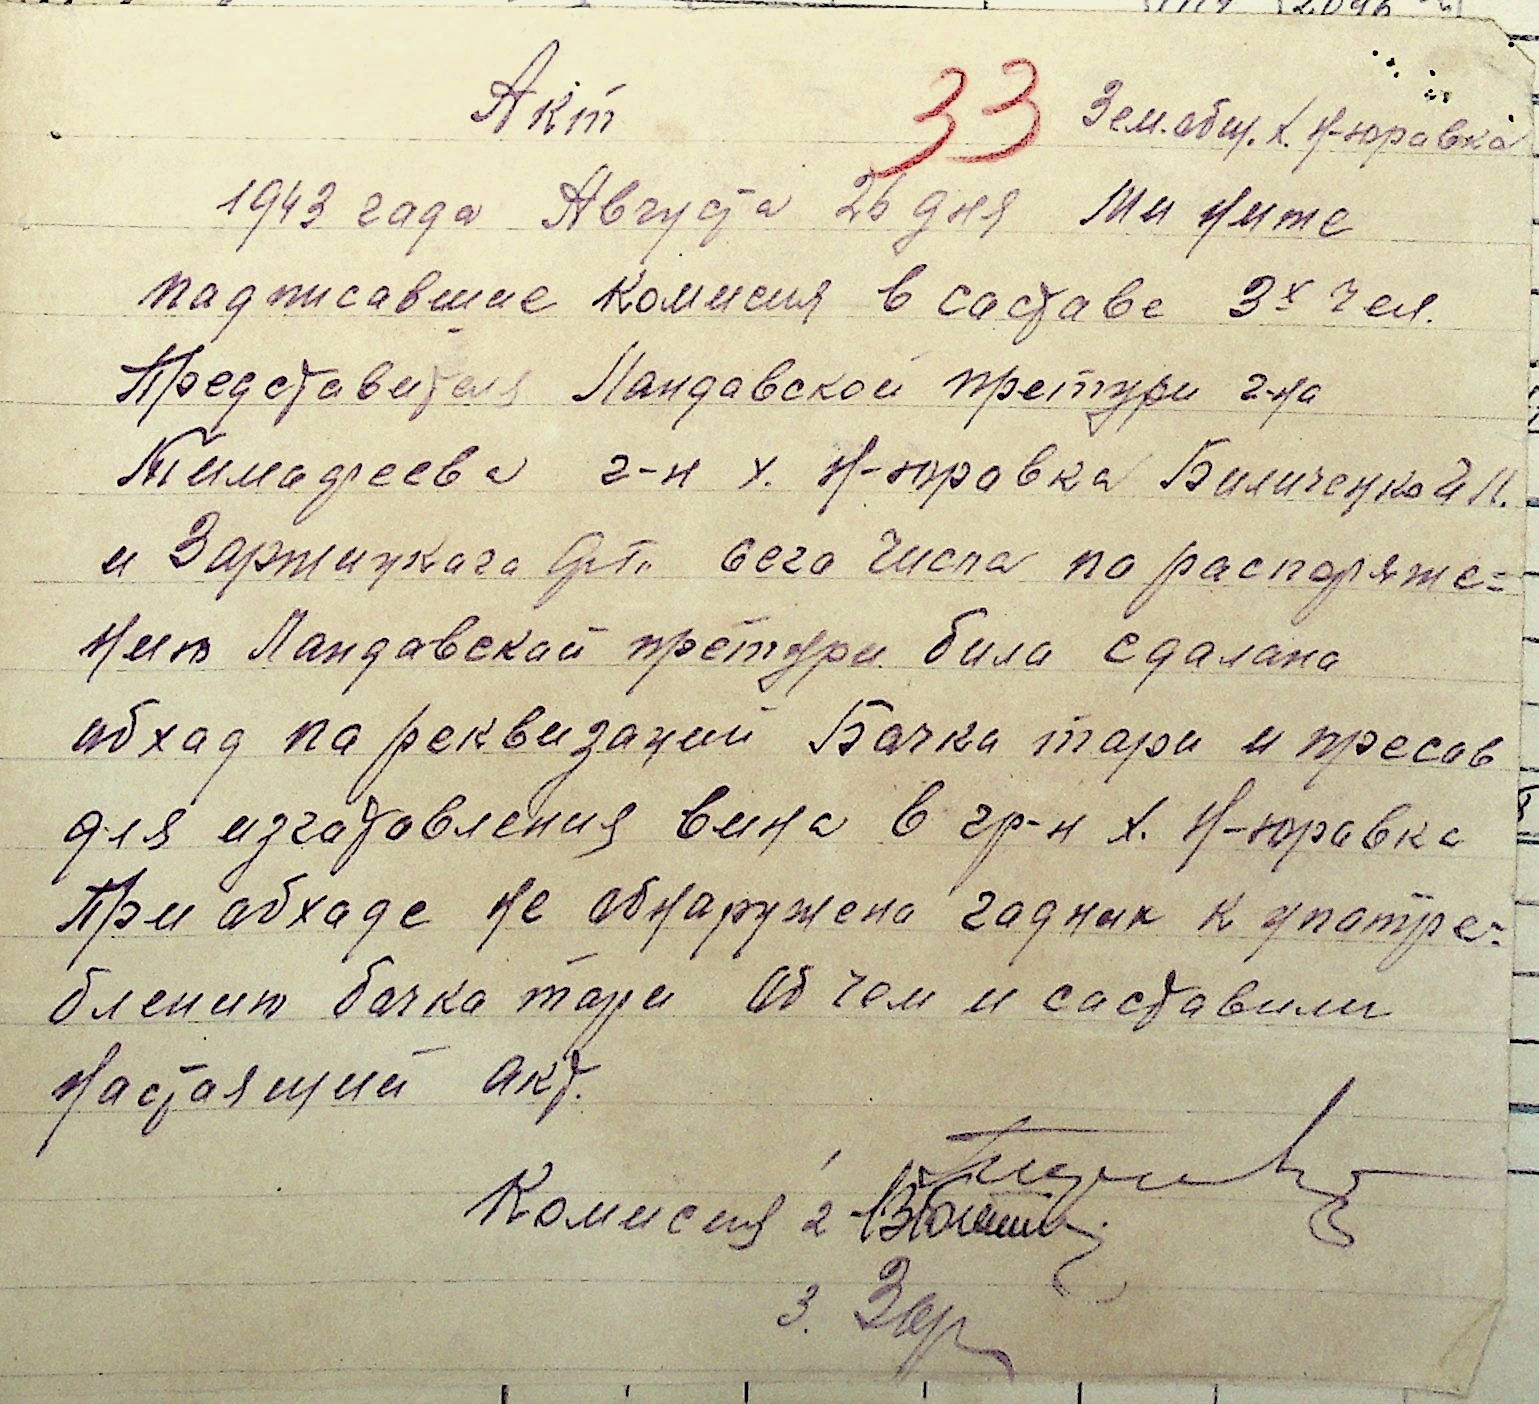 Акт 33 Зем.общ. х. Н-юравка
1943 года Августа 26 дня Ми ниже
падписавшие комисия в саставе 3х чел.
Представителя Ландавской претури г-на
Тимафеева г-н х. Н-юравка Биличенкой Л.
и Заржицкага сего числа по распаряже=
нию Ландавской претури била сдалана
абхад па реквизаций Бачка тари и пресав
для изгатавления вина в гр-н х. Н-юравка
При абхаде не абнаружена гадник к упатре=
блению бачка тари Об чом и саставили
Настаящий акт.
Комисия 1
2
3. Зар